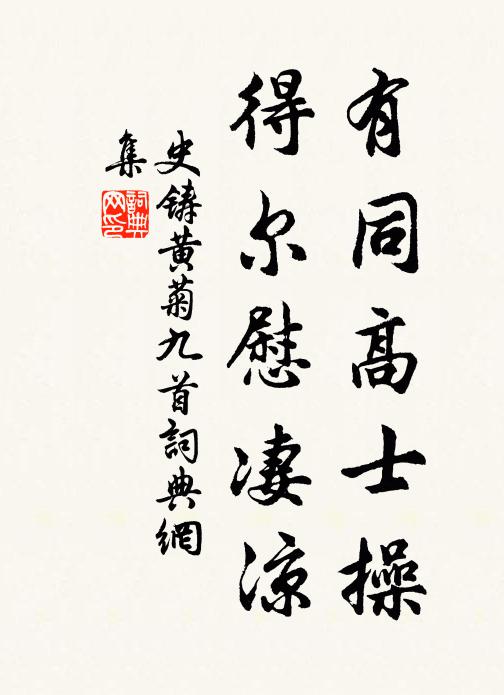 有同高士操
得尔慰凄涼
史鑄黄菊九首詞典網
集
詞典網印